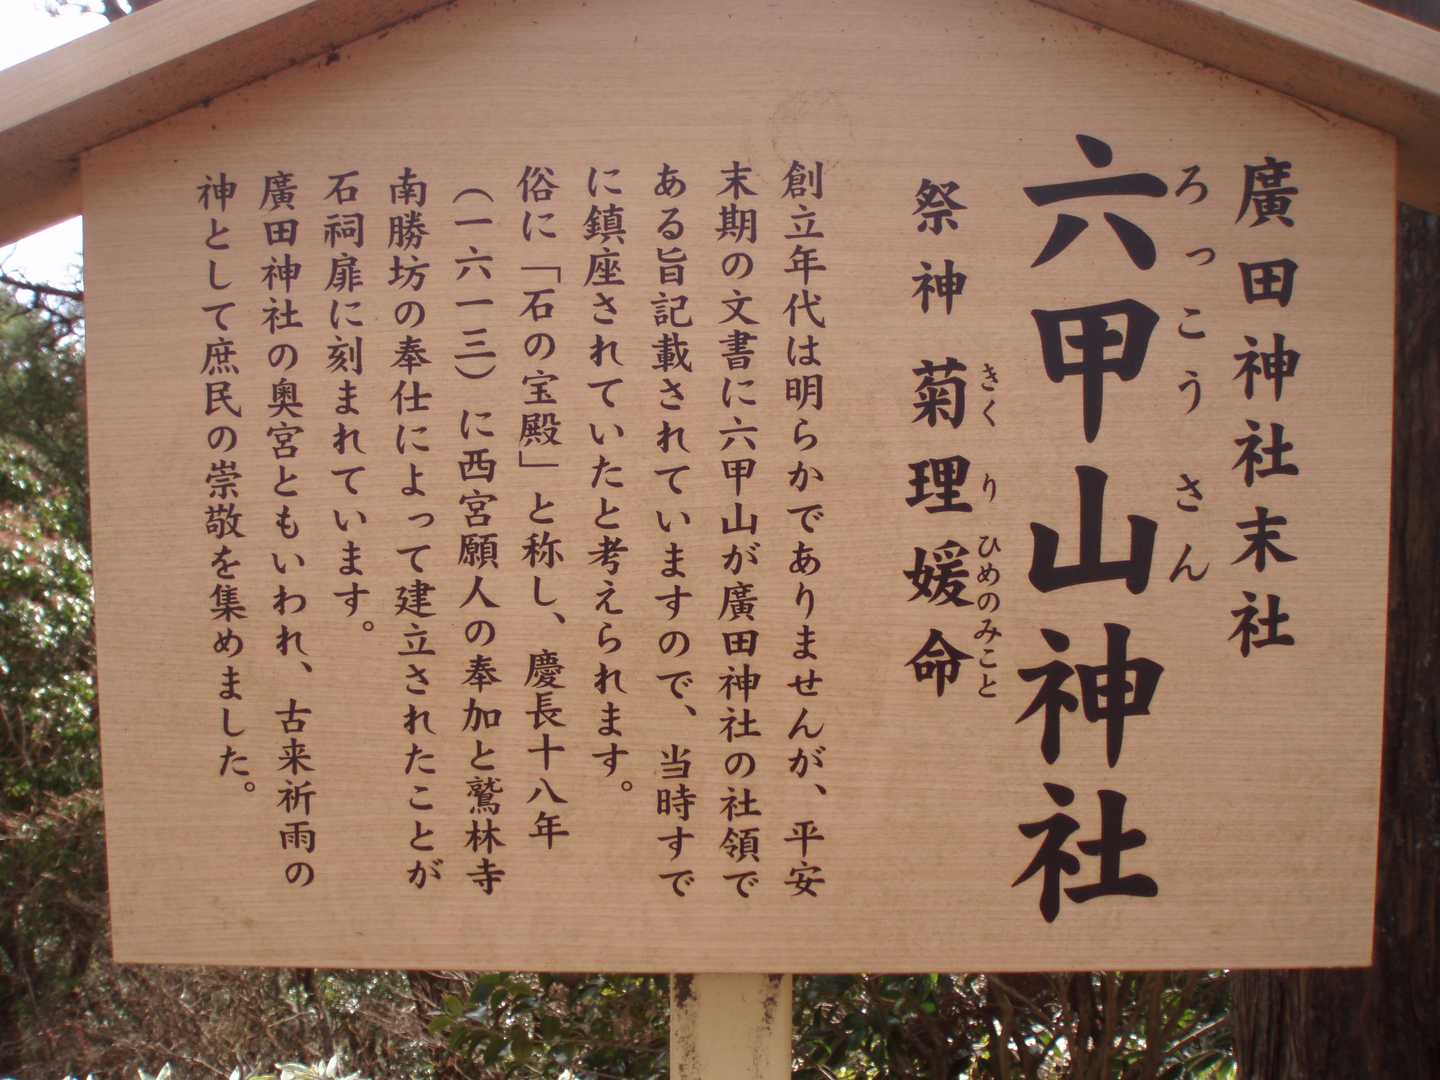 廣田神社末社
ろっこうさん
六甲山神社
きくりひめのみこと
祭神 菊理媛命
創立年代は明らかでありませんが、平安
末期の文書に六甲山が廣田神社の社領で
ある旨記載されていますので、当時すで
に鎮座されていたと考えられます。
俗に「石の宝殿」と称し、慶長十八年
(一六一三)に西宮願人の奉加と鷲林寺
南勝坊の奉仕によって建立されたことが
石祠扉に刻まれています。
廣田神社の奥宮ともいわれ、古来祈雨の
神として庶民の崇敬を集めました。